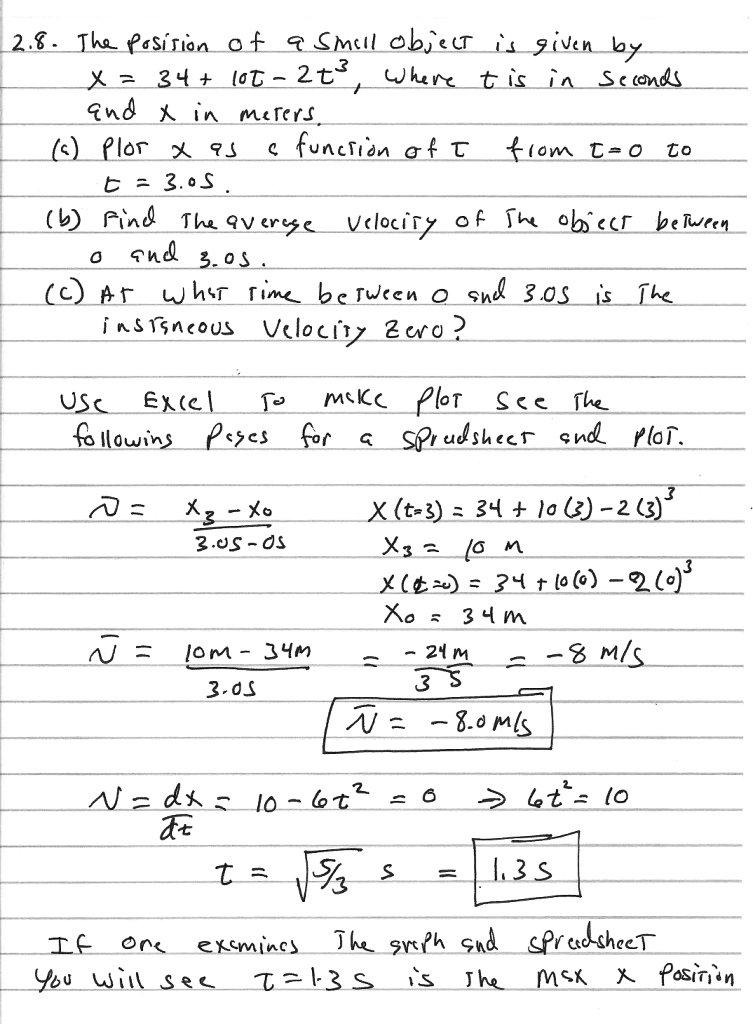 2.8. The position of a small object is given by
x = 34 + 10t - 2t³, where t is in seconds
and x in meters.
(a) Plot x as a function of t from t=0 to
t = 3.0s.
(b) Find the average velocity of the object between
0 and 3.0s.
(c) At what time between 0 and 3.0s is the
instaneous velocity zero?
Use Excel to make plot see the
following pages for a spreadsheet and plot.
v̄ = (x₃ - x₀)/(3.0s - 0s) x(t=3) = 34 + 10(3) - 2(3)³
x₃ = 10 m
x(t=0) = 34 + 10(0) - 2(0)³
x₀ = 34m
v̄ = (10m - 34m)/3.0s = -24m/3s = -8 m/s
v̄ = -8.0 m/s
v = dx/dt = 10 - 6t² = 0 ⇒ 6t² = 10
t = √(5/3) s = 1.3s
If one examines the graph and spreadsheet
you will see t=1.3s is the max x position